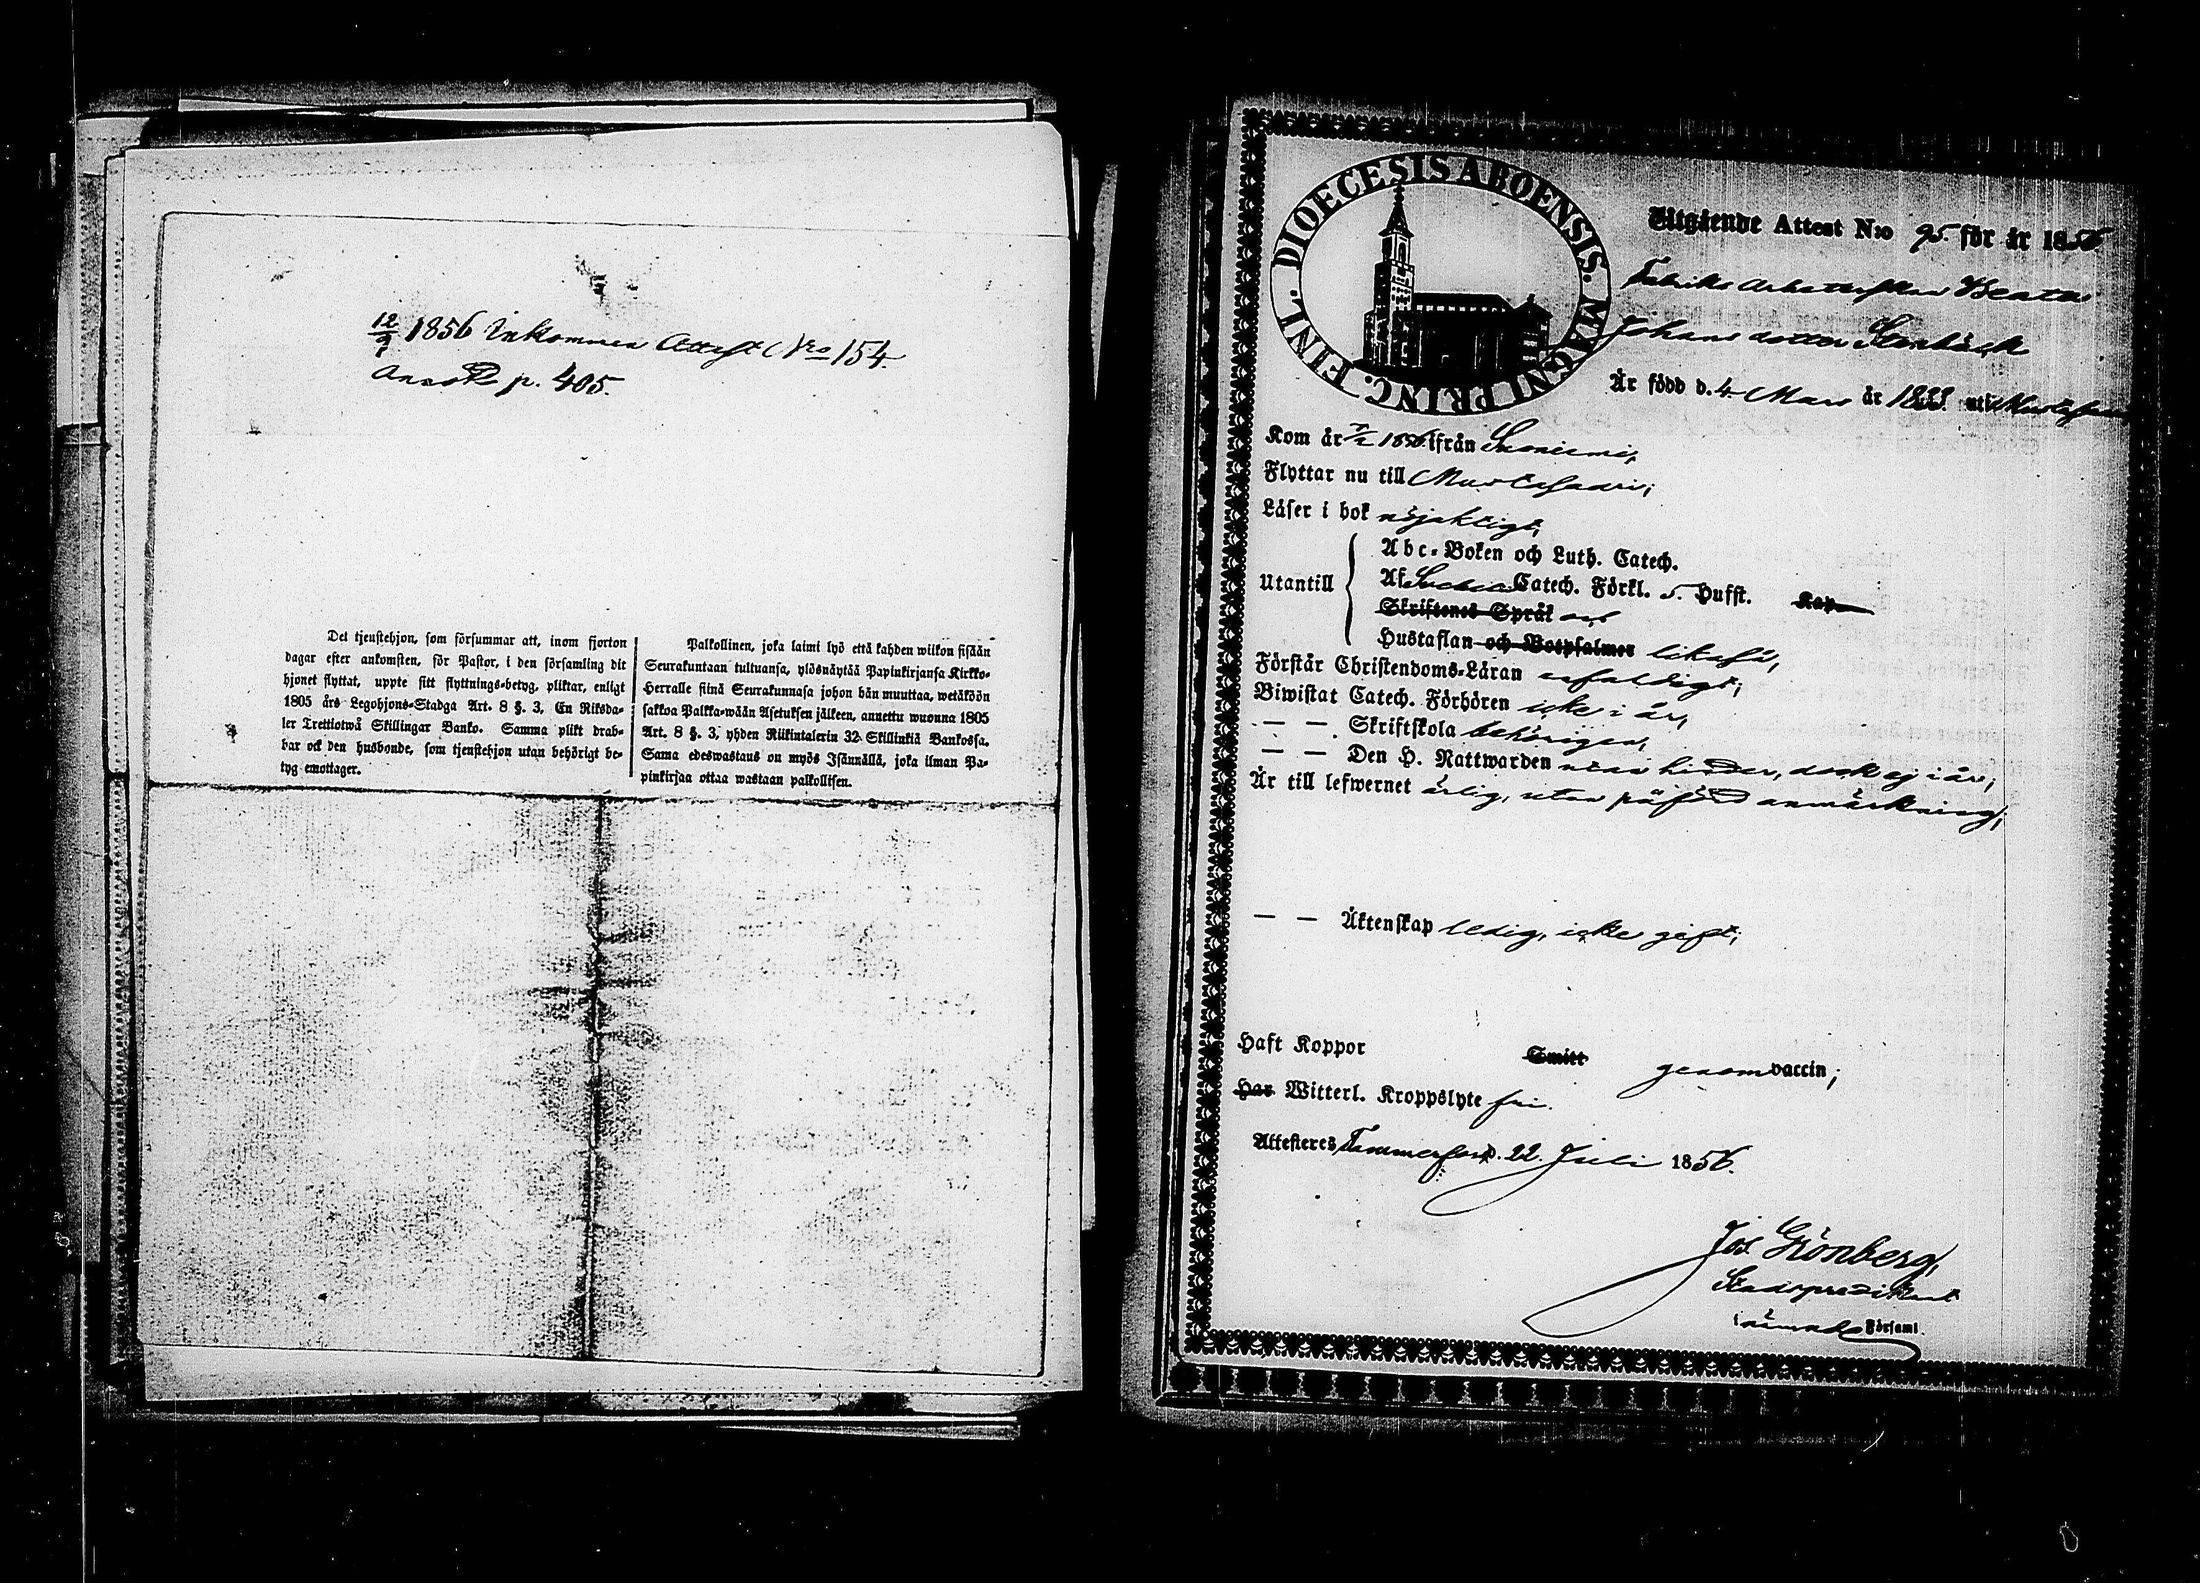 12/9 1856 Inkommen Attest Nro 154.
p. 405.
Det tjenstehjon, som försummar att, inom fjorton
dagar efter ankomsten, för Pastor, i den församling dit
hjonet flyttat, uppte sitt flyttnings-betyg, pliktar, enligt
1805 års Legohjons-Stadga Art. 8 §. 3. En Riksda-
ler Trettiotwå Skillingar Banko. Samma plikt drab-
bar ock den husbonde, som tjenstehjon utan behörigt be-
tyg emottager.
Palkollinen, joka laimi lyö että kahden wiikon sisään
Seurakuntaan tultuansa, ylösnäytää Papinkirjansa Kirkko-
Herralle siinä Seurakunnasa johon hän muuttaa, wetäköön
sakkoa Palkka-wään Asetuksen jälkeen, annettu wuonna 1805
Art. 8 §. 3, yhden Riikintalerin 32 Skillinkiä Bankossa.
Sama edeswastaus on myös Isännällä, joka ilman Pa-
pinkirjaa ottaa wastaan palkollisen.
DIOECESIS ABOENSIS. MAGNI PRINC. FINL.
Utgående Attest N:o 95. för år 1856
Fabriks Arbeterskan Beata
Johans dotter Stenbäck
Är född d. 4 Mars år 1833 uti Mustasaari
Kom år 7/2 1856 ifrån Suoniemi,
Flyttar nu till Mustasaari;
Läser i bok nöjaktigt,
Utantill
Abc-Boken och Luth. Catech.
Af Catech. Förkl. 5. Hufst. Kap
Skriftenes Språk
Hustaflan och Botpsalmer likaså,
Förstår Christendoms-Läran enfaldigt;
Biwistat Catech. Förhören icke i år,
— — Skriftskola behörigen,
— — Den H. Nattwarden utan hinder, dock ej i år;
Är till lefwernet ärlig, utan påförd anmärkning;
— — Äktenskap ledig, icke gift;
Haft Koppor Smitt genom vaccin;
Har Witterl. Kroppslyte fri.
Attesteres Tammerfors d. 22. Juli 1856.
Jos. Grönberg,
Stadspredikant
i nämnde Församl.